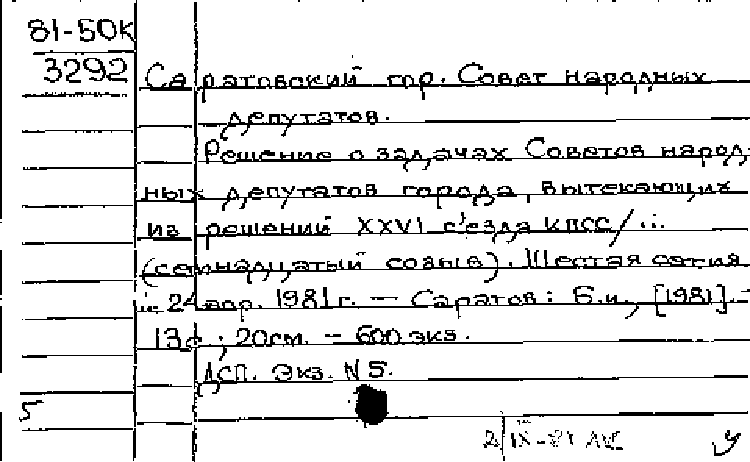 81-50К
3292
Саратовский гор. Совет народных
депутатов.
Решение о задачах Советов народ-
ных депутатов города, вытекающих
из решений XXVI с'езда КПСС/...
(семнадцатый созыв). Шестая сессия
... 24 апр. 1981 г. — Саратов: Б.и., [1981]. —
13с.; 20см. — 600 экз.
ДСП. Экз. N 5.
5
2/IX-81